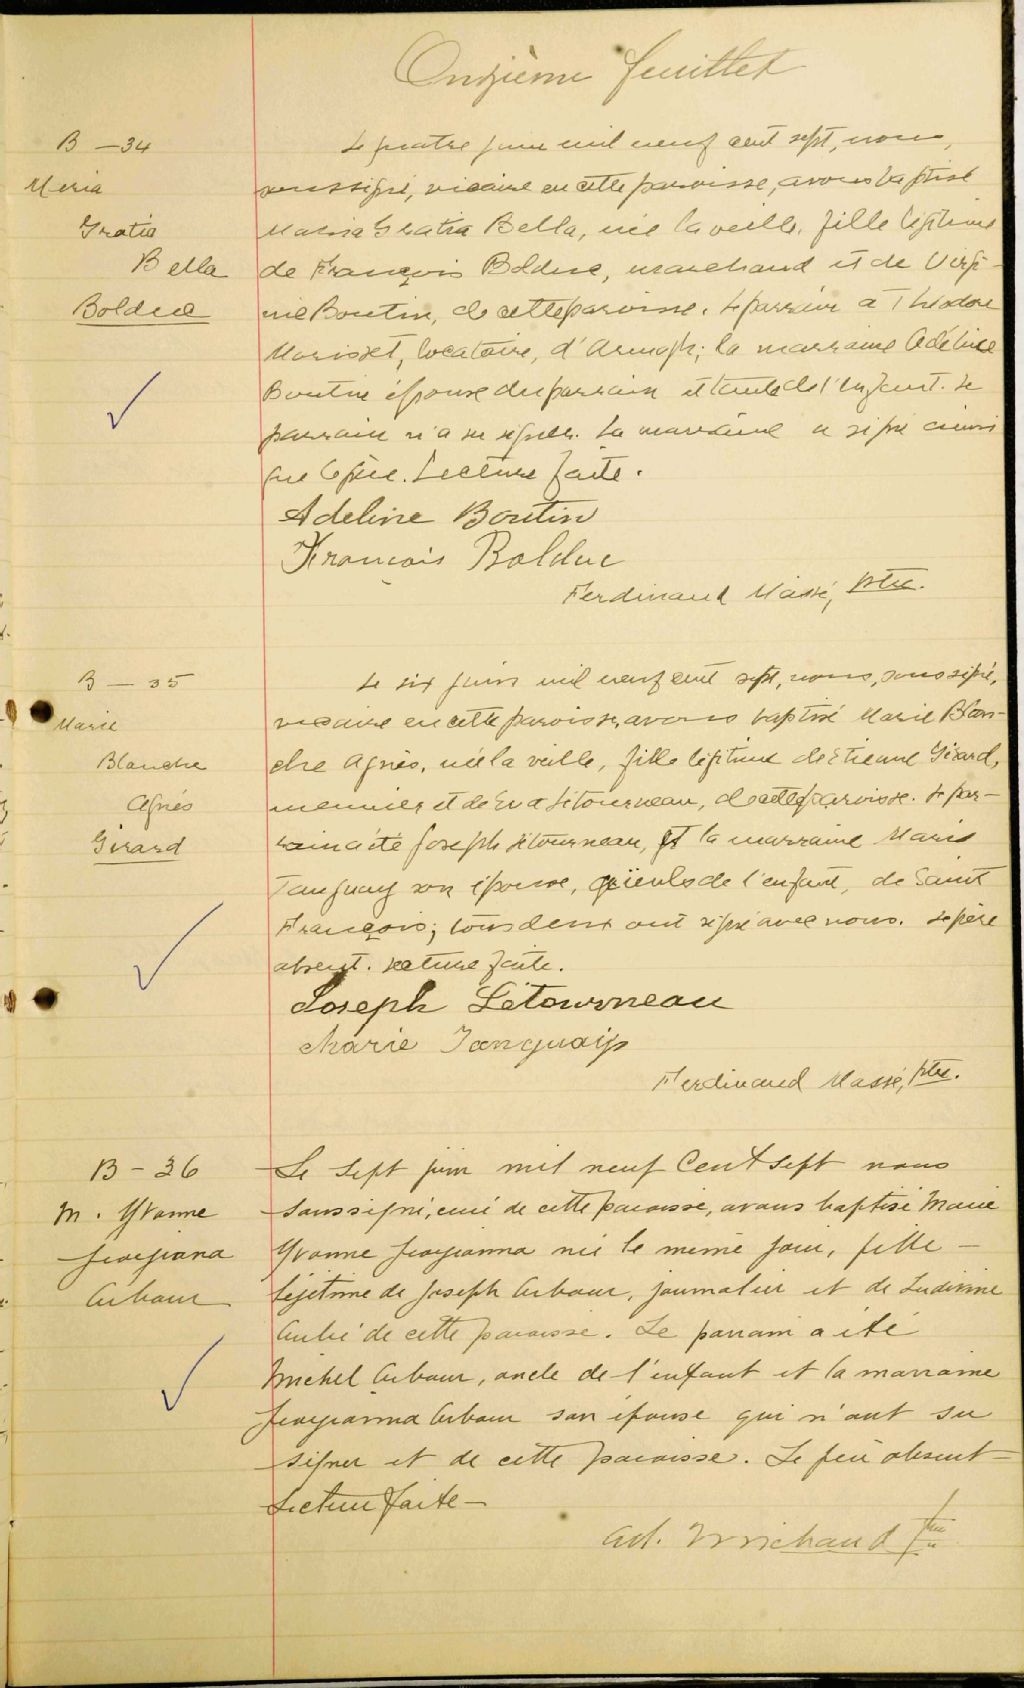 Onzième feuillet
B — 34
Maria
Gratia
Bella
Bolduc
Le quatre juin mil neuf cent sept, nous,
soussigné, vicaire en cette paroisse, avons baptisé
Maria Gratia Bella, née la veille, fille légitime
de François Bolduc, marchand et de Virgi-
nie Boutin, de cette paroisse. Le parrain a Théodore
Morisset, locataire, d'Armagh; la marraine Adéline
Boutin épouse du parrain et tante de l'enfant. Le
parrain n'a su signer. La marraine a signé ainsi
que le père. Lecture faite.
Adeline Boutin
François Bolduc
Ferdinand Massé, ptre.
B — 35
Marie
Blanche
Agnès
Girard
Le six juin mil neuf cent sept, nous, soussigné,
vicaire en cette paroisse, avons baptisé Marie Blan-
che Agnès, née la veille, fille légitime de Etienne Girard,
meunier et de Eva Létourneau, de cette paroisse. Le par-
rain a été Joseph Létourneau, et la marraine Marie
Tanguay son épouse, aïeuls de l'enfant, de Saint
François; tous deux ont signé avec nous. Le père
absent. Lecture faite.
Joseph Létourneau
Marie Tanguay
Ferdinand Massé, ptre.
B - 36
M. Yvonne
Georgiana
Arbour
Le sept juin mil neuf cent sept nous
soussigné, curé de cette paroisse, avons baptisé Marie
Yvonne Georgianna née le même jour, fille —
légitime de Joseph Arbour, journalier et de Ludivine
Aubé de cette paroisse. Le parrain a été
Michel Arbour, oncle de l'enfant et la marraine
Georgianna Arbour son épouse qui n'ont su
signer et de cette paroisse. Le père absent —
Lecture faite —
Ad. Michaud Ptre